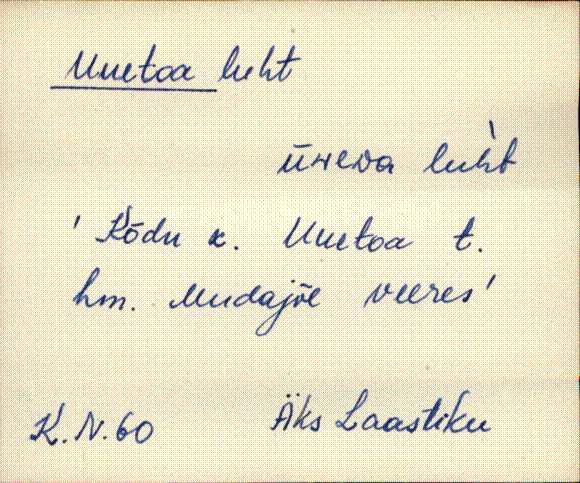 Uuetoa luht
üwewa luh̀t
' Kõdu k. Uuetoa t.
hm. Mudajõe veeres'
K.N.60 Äks Laastiku